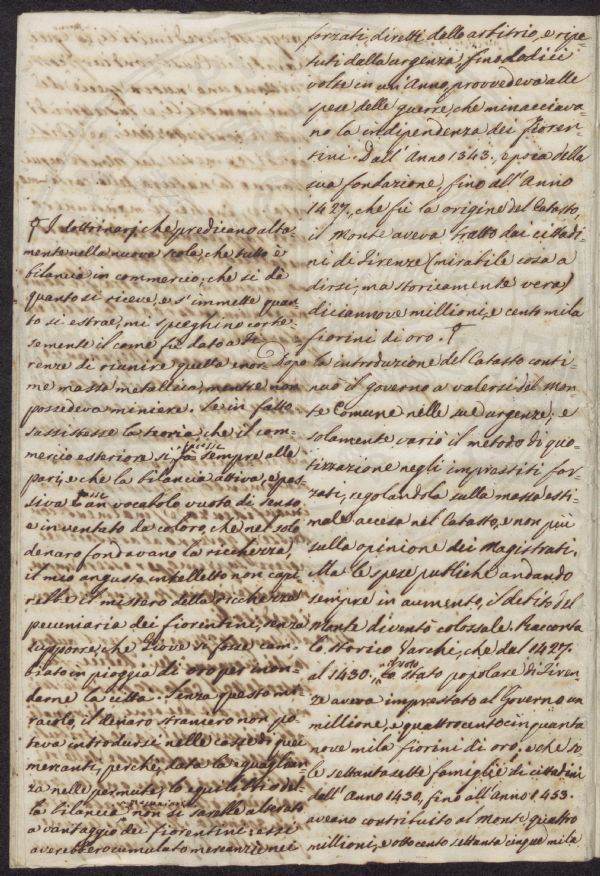 forzati, diretti dallo arbitrio, e ripe=
tuti dalla urgenza, fino dodici
volte in un'Anno, provvedeva alle
spese delle guerre, che minacciava=
no la indipendenza dei fioren=
tini. Dall'Anno 1343., epoca della
sua fondazione, fino all'Anno
1427., che fù la origine del Catasto,
il Monte aveva tratto dai cittadi=
ni di Firenze (mirabile cosa a
dirsi, ma storicamente vera)
diciannove millioni, e cento mila
fiorini di oro. †
Dopo la introduzione del Catasto conti=
nuò il governo a valersi del Mon=
te Comune nelle sue urgenze; e
solamente variò il metodo di quo=
tizzazione negli imprestiti for=
zati, regolandola sulla massa esti=
male accesa nel Catasto, e non più
sulla opinione dei Magistrati.
Ma le spese publiche andando
sempre in aumento, il debito del
Monte diventò colossale. Racconta
lo storico Varchi, che dal 1427.
al 1430., lo stato popolare di Firen=
ze aveva imprestato al Governo un
millione, e quattrocento cinquanta
nove mila fiorini di oro, e che so=
le settanta sette famiglie di cittadini
dall'Anno 1430, fino all'Anno 1453.
aveano contribuito al Monte quattro
millioni, e ottocento settanta cinque mila
† I dottrinarj che predicano alta=
mente nella nuova scola, che tutto è
bilancia in commercio, che si dà
quanto si riceve, e s'immette quan=
to si estrae, mi speghino corte=
semente il come fù dato a Fi=
renze di riunire quella enor=
me massa metallica, mentre non
possedeva miniere. Se in fatto
sussistesse la teoria che il com=
mercio esteriore si fà sempre alla
pari, e che la bilancia attiva, e pas=
siva è un vocabolo vuoto di senso,
e inventato da coloro, che nel solo
denaro fondavano la ricchezza,
il mio angusto intelletto non capi=
rebbe il mistero della ricchezza
pecuniaria dei fiorentini, senza
supporre, che Giove si fosse cam=
biato in pioggia di oro per inon=
darne la città. Senza questo mi=
racolo, il denaro straniero non po=
teva introdursi nelle casse di quei
mercanti, perchè, data la eguaglian=
za nelle permute, lo equilibrio del=
la bilancia non si sarebbe alterato
a vantaggio dei fiorentini, e essi
averebbero cumulato mercanzie nei